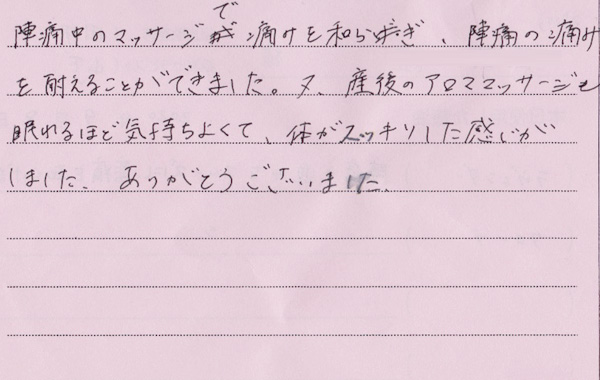 陣痛中のマッサージで痛みを和らぎ、陣痛の痛み
を耐えることができました。又、産後のアロママッサージも
眠れるほど気持ちよくて、体がスッキリした感じが
しました。ありがとうございました。